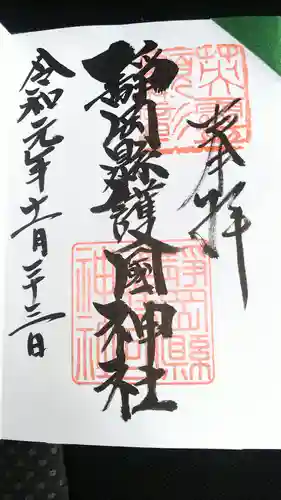 奉拝
靜岡縣護國神社
令和元年十一月二十三日
靜岡縣
護國
神社
英霊